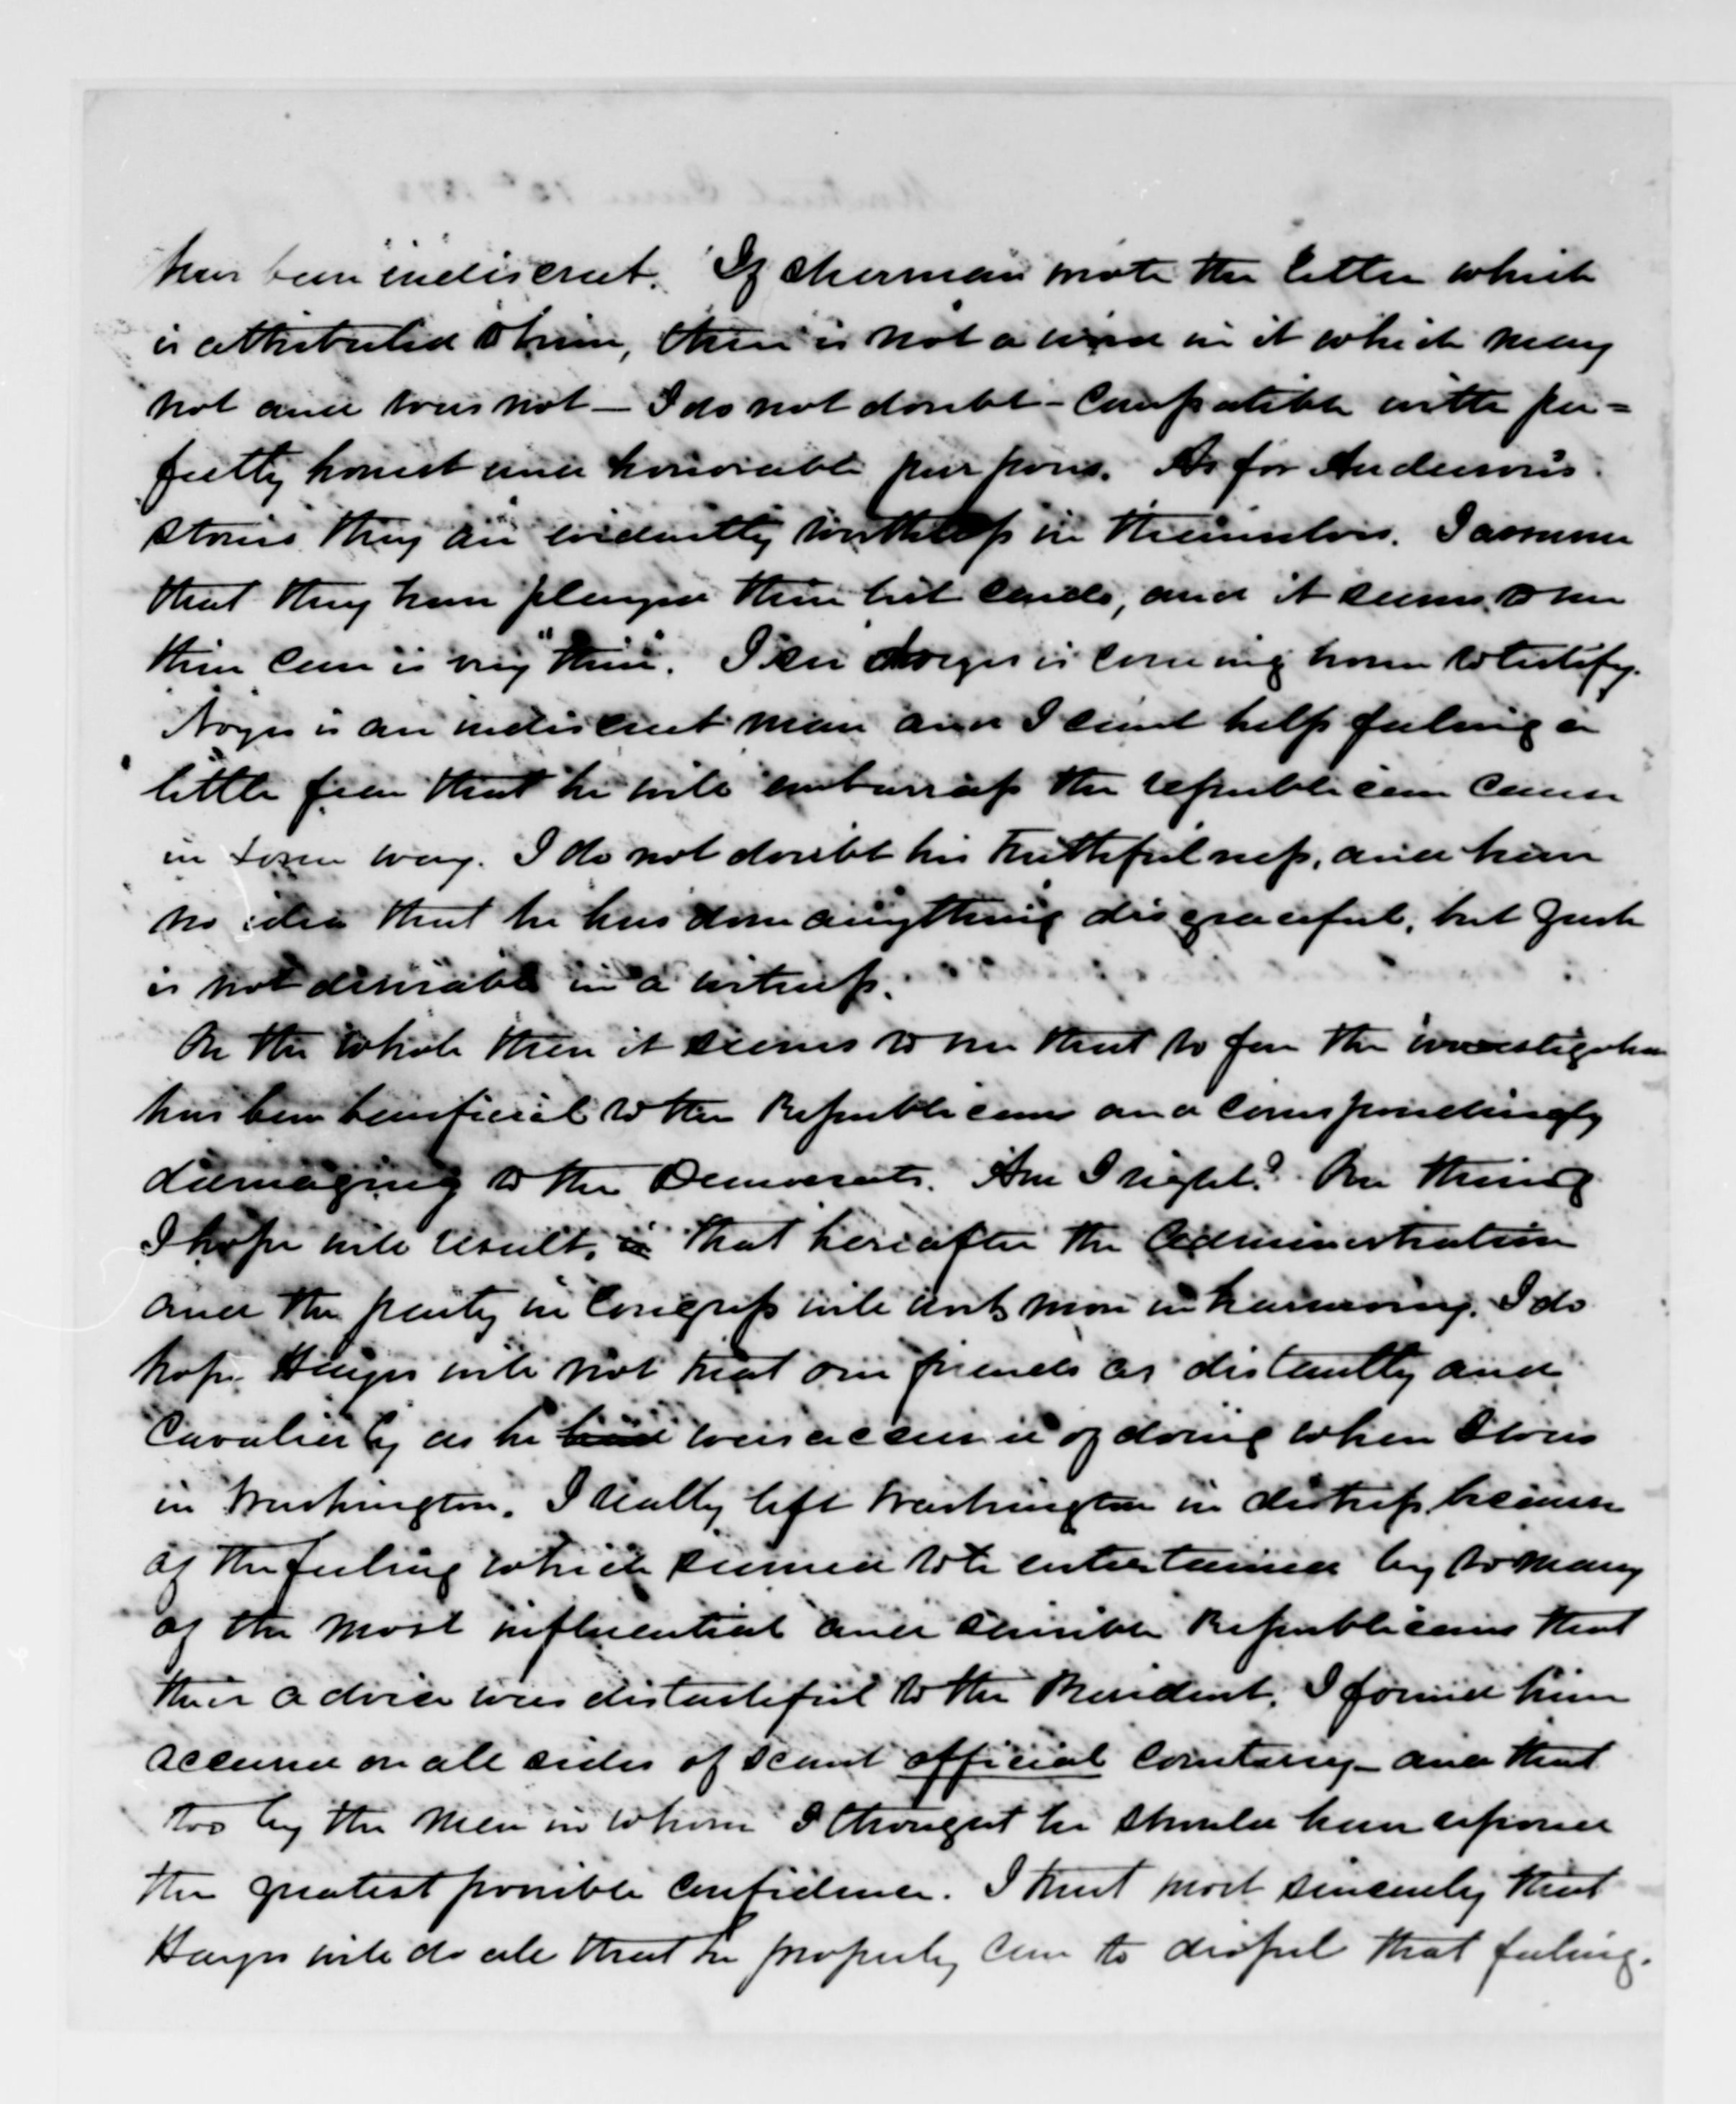 has been indiscreet. If Sherman wrote the letter which
is attributed to him, there is not a word in it which may
not and was not — I do not doubt — compatible with per=
fectly honest and honorable purposes. As for Anderson's
stories they are evidently worthless in themselves. I assume
that they have played their best cards, and it seems to me
their case is very "thin". I see Noyes is coming home to testify.
Noyes is an indiscreet man and I cant help feeling a
little fear that he will embarrass the republican cause
in some way. I do not doubt his truthfulness, and have
no idea that he has done anything disgraceful, but gush
is not desirable in a witness.
On the whole then it seems to me that so far the investigation
has been beneficial to the Republicans and correspondingly
damaging to the Democrats. Am I right? One thing
I hope will result, is that hereafter the Administration
and the party in Congress will work more in harmony. I do
hope Hayes will not treat our friends as distantly and
cavalierly as he had was accused of doing when I was
in Washington. I really left Washington in distress because
of the feeling which seemed to be entertained by so many
of the most influential and sensible Republicans that
their advice was distasteful to the President. I found him
accused on all sides of scant official courtesy — and that
too by the men in whom I thought he should have reposed
the greatest possible confidence. I trust most sincerely that
Hayes will do all that he properly can to dispel that feeling.